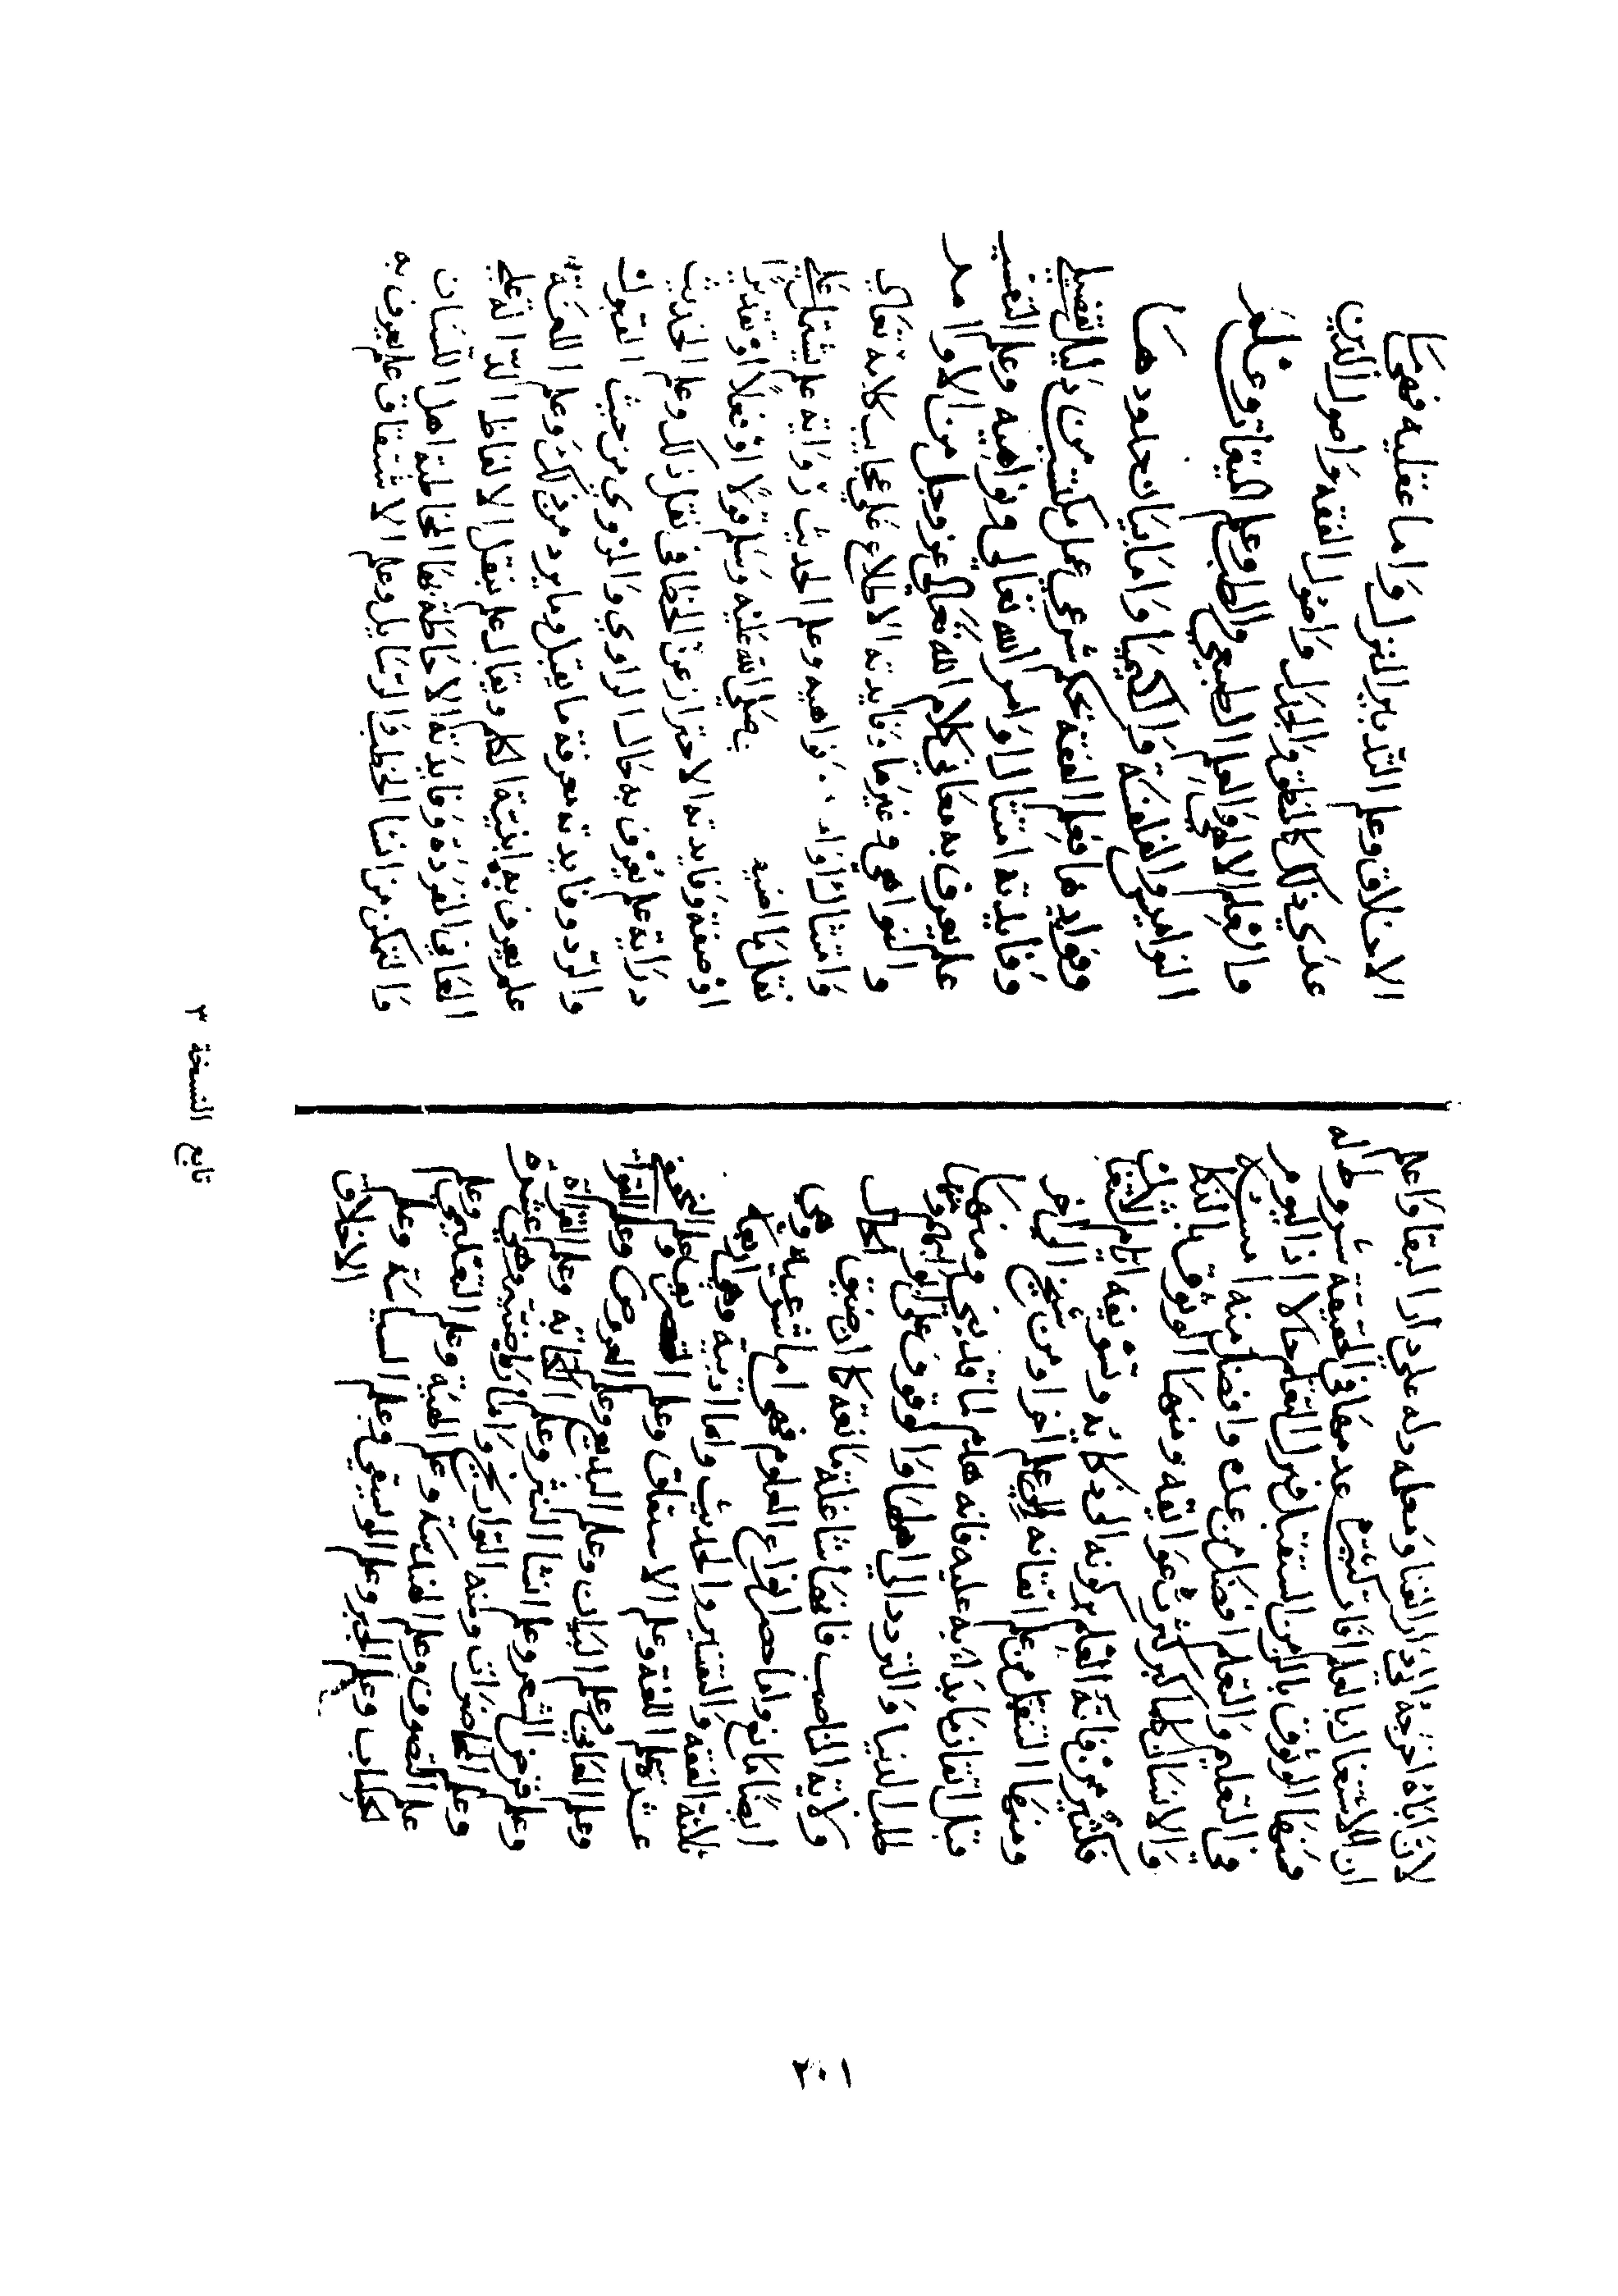 لان اباه اخرجه الي دار الفنا ومعلمه دله علي دار البقا واعلم
ان للاشتغال بالعلم افات كثيرة عدمها في الحقيقة شروط له
فمنها الوثوق بالزمن المستقبل فيترك التعلم حالا اذ اليوم
في التعليم والتعلم افضل من غده وافضل منه امسه
والانسان كلما كبر كثرت عوايقه ومنها الوثوق بالذكا
فكثير من فاته العلم بركونه الي ذكايه وتسويفه ايام الاشتغال
ومنها التنقل من علم اتقانه الي علم اخر او من شيخ الي اخر
قبل اتقان ما بداء به عليه فانه هدم لما قد بني ومنها
طلب الدنيا والتردد الي اهلها والوقوف علي ابوابهم ومنها
ولاية المناصب فانها شاغلة مانعة كما ان ضيق الحال
ايضا مانع واما حصر انواع العلوم فهي اما شرعية وهي
ثلاثة الفقه والتفسير والحديث واما ادبية وهي اربعة
عشر علم اللغة وعلم الاشتقاق وعلم التصريف وعلم النحو
وعلم المعاني وعلم البيان وعلم البديع وعلم العروض وعلم القواف
وعلم قرض الشعر وعلم انشا النثر وعلم الكتابة وعلم القراة
وعلم المحاضرات ومنه التواريخ واما رياضية وهي عشرة
علم التصوف وعلم الهندسة وعلم الهيئة وعلم التعليمي وعلم
الحساب وعلم الجبر وعلم الموسيقي وعلم السياسة وعلم
الاخلاق
الاخلاق وعلم التدبير المنزل واما عقلية فهي ما
عدي ذلك كالمنطق والجدل واصول الفقه واصول الدين
والعلم الالهي والعلم الطبيعي والطب وعلم الميقات وعلم
النواميس والفلسفة والكيميا واما بيان حدودها
وفوايدها فعلم الفقه بحكم شرعي عملي مكتسب من دليل تفصيلي
وفايدته امتثال اوامر الله تعالي ونواهيه وعلم التفسير
علم يعرف به معاني كلام الله تعالي عز وجل من الاوامر
والنواهي وغيرها وفايدته الاطلاع علي عجايب كلامه تعالي
وامتثال اوامره ونواهيه وعلم الحديث رواية علم يشتمل علي
نقل ما اضيف صلي الله عليه وسلم قولا او فعلا او تقديرا
او صفة وفايدته الاحتراز عن الخطا في نقل ذلك وعلم الحديث
دراية علم يعرف به حال الراوي والمروي من حيث القبول
والرد وفايدته معرفة ما يقبل وما يرد من ذلك وعلم اللغة
علم يعرف به ابنية الكلم ويقال علم بنقل الالفاظ الدالة علي
المعاني المفردة وفايدته الاحاطة بها لمخاطبة اهل اللسان
والتمكن من انشا الخطب والرسايل وعلم الاشتقاق علم يعرف به
تابع النسخة ٣
٢٠١